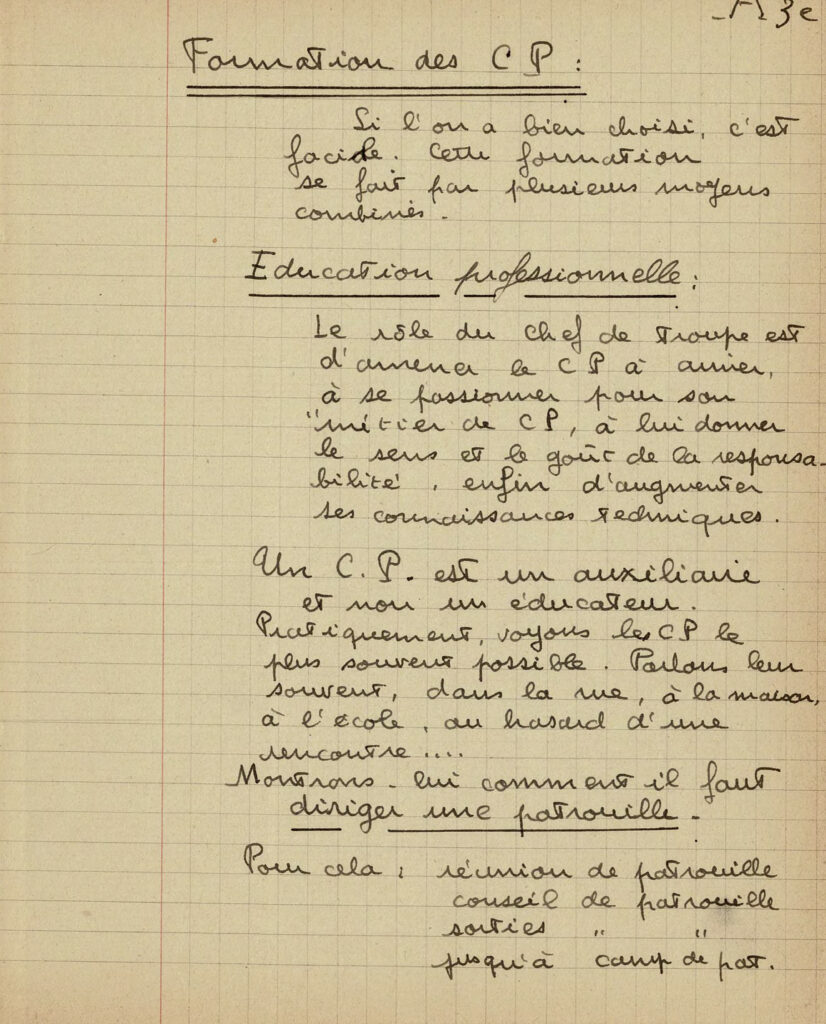 3e
Formation des CP :
Si l'on a bien choisi, c'est
facile. Cette formation
se fait par plusieurs moyens
combinés.
Education professionnelle :
Le rôle du Chef de Troupe est
d'amener le CP à aimer,
à se passionner pour son
"métier de CP, à lui donner
le sens et le goût de la responsa-
bilité, enfin d'augmenter
ses connaissances techniques.
Un C.P. est un auxiliaire
et non un éducateur.
Pratiquement, voyons les CP le
plus souvent possible. Parlons leur
souvent, dans la rue, à la maison,
à l'école, au hasard d'une
rencontre ....
Montrons-lui comment il faut
diriger une patrouille.
Pour cela : réunion de patrouille
conseil de patrouille
sorties " "
jusqu'à camp de pat.